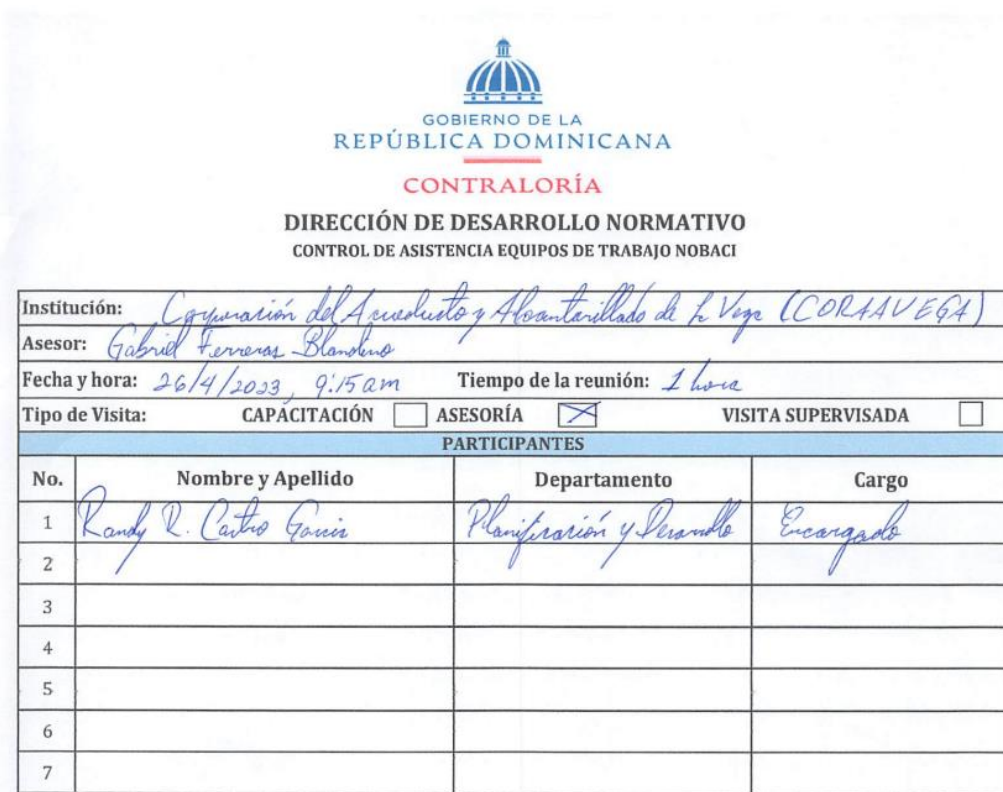 GOBIERNO DE LA
REPÚBLICA DOMINICANA
CONTRALORÍA
DIRECCIÓN DE DESARROLLO NORMATIVO
CONTROL DE ASISTENCIA EQUIPOS DE TRABAJO NOBACI
Institución: Corporación del Acueducto y Alcantarillado de La Vega (CORAAVEGA)
Asesor: Gabriel Ferreras Blandino
Fecha y hora: 26/4/2023, 9:15 am Tiempo de la reunión: 1 hora
Tipo de Visita: CAPACITACIÓN ASESORÍA VISITA SUPERVISADA
PARTICIPANTES
No. Nombre y Apellido Departamento Cargo
1 Randy R. Castro García Planificación y Desarrollo Encargado
2
3
4
5
6
7